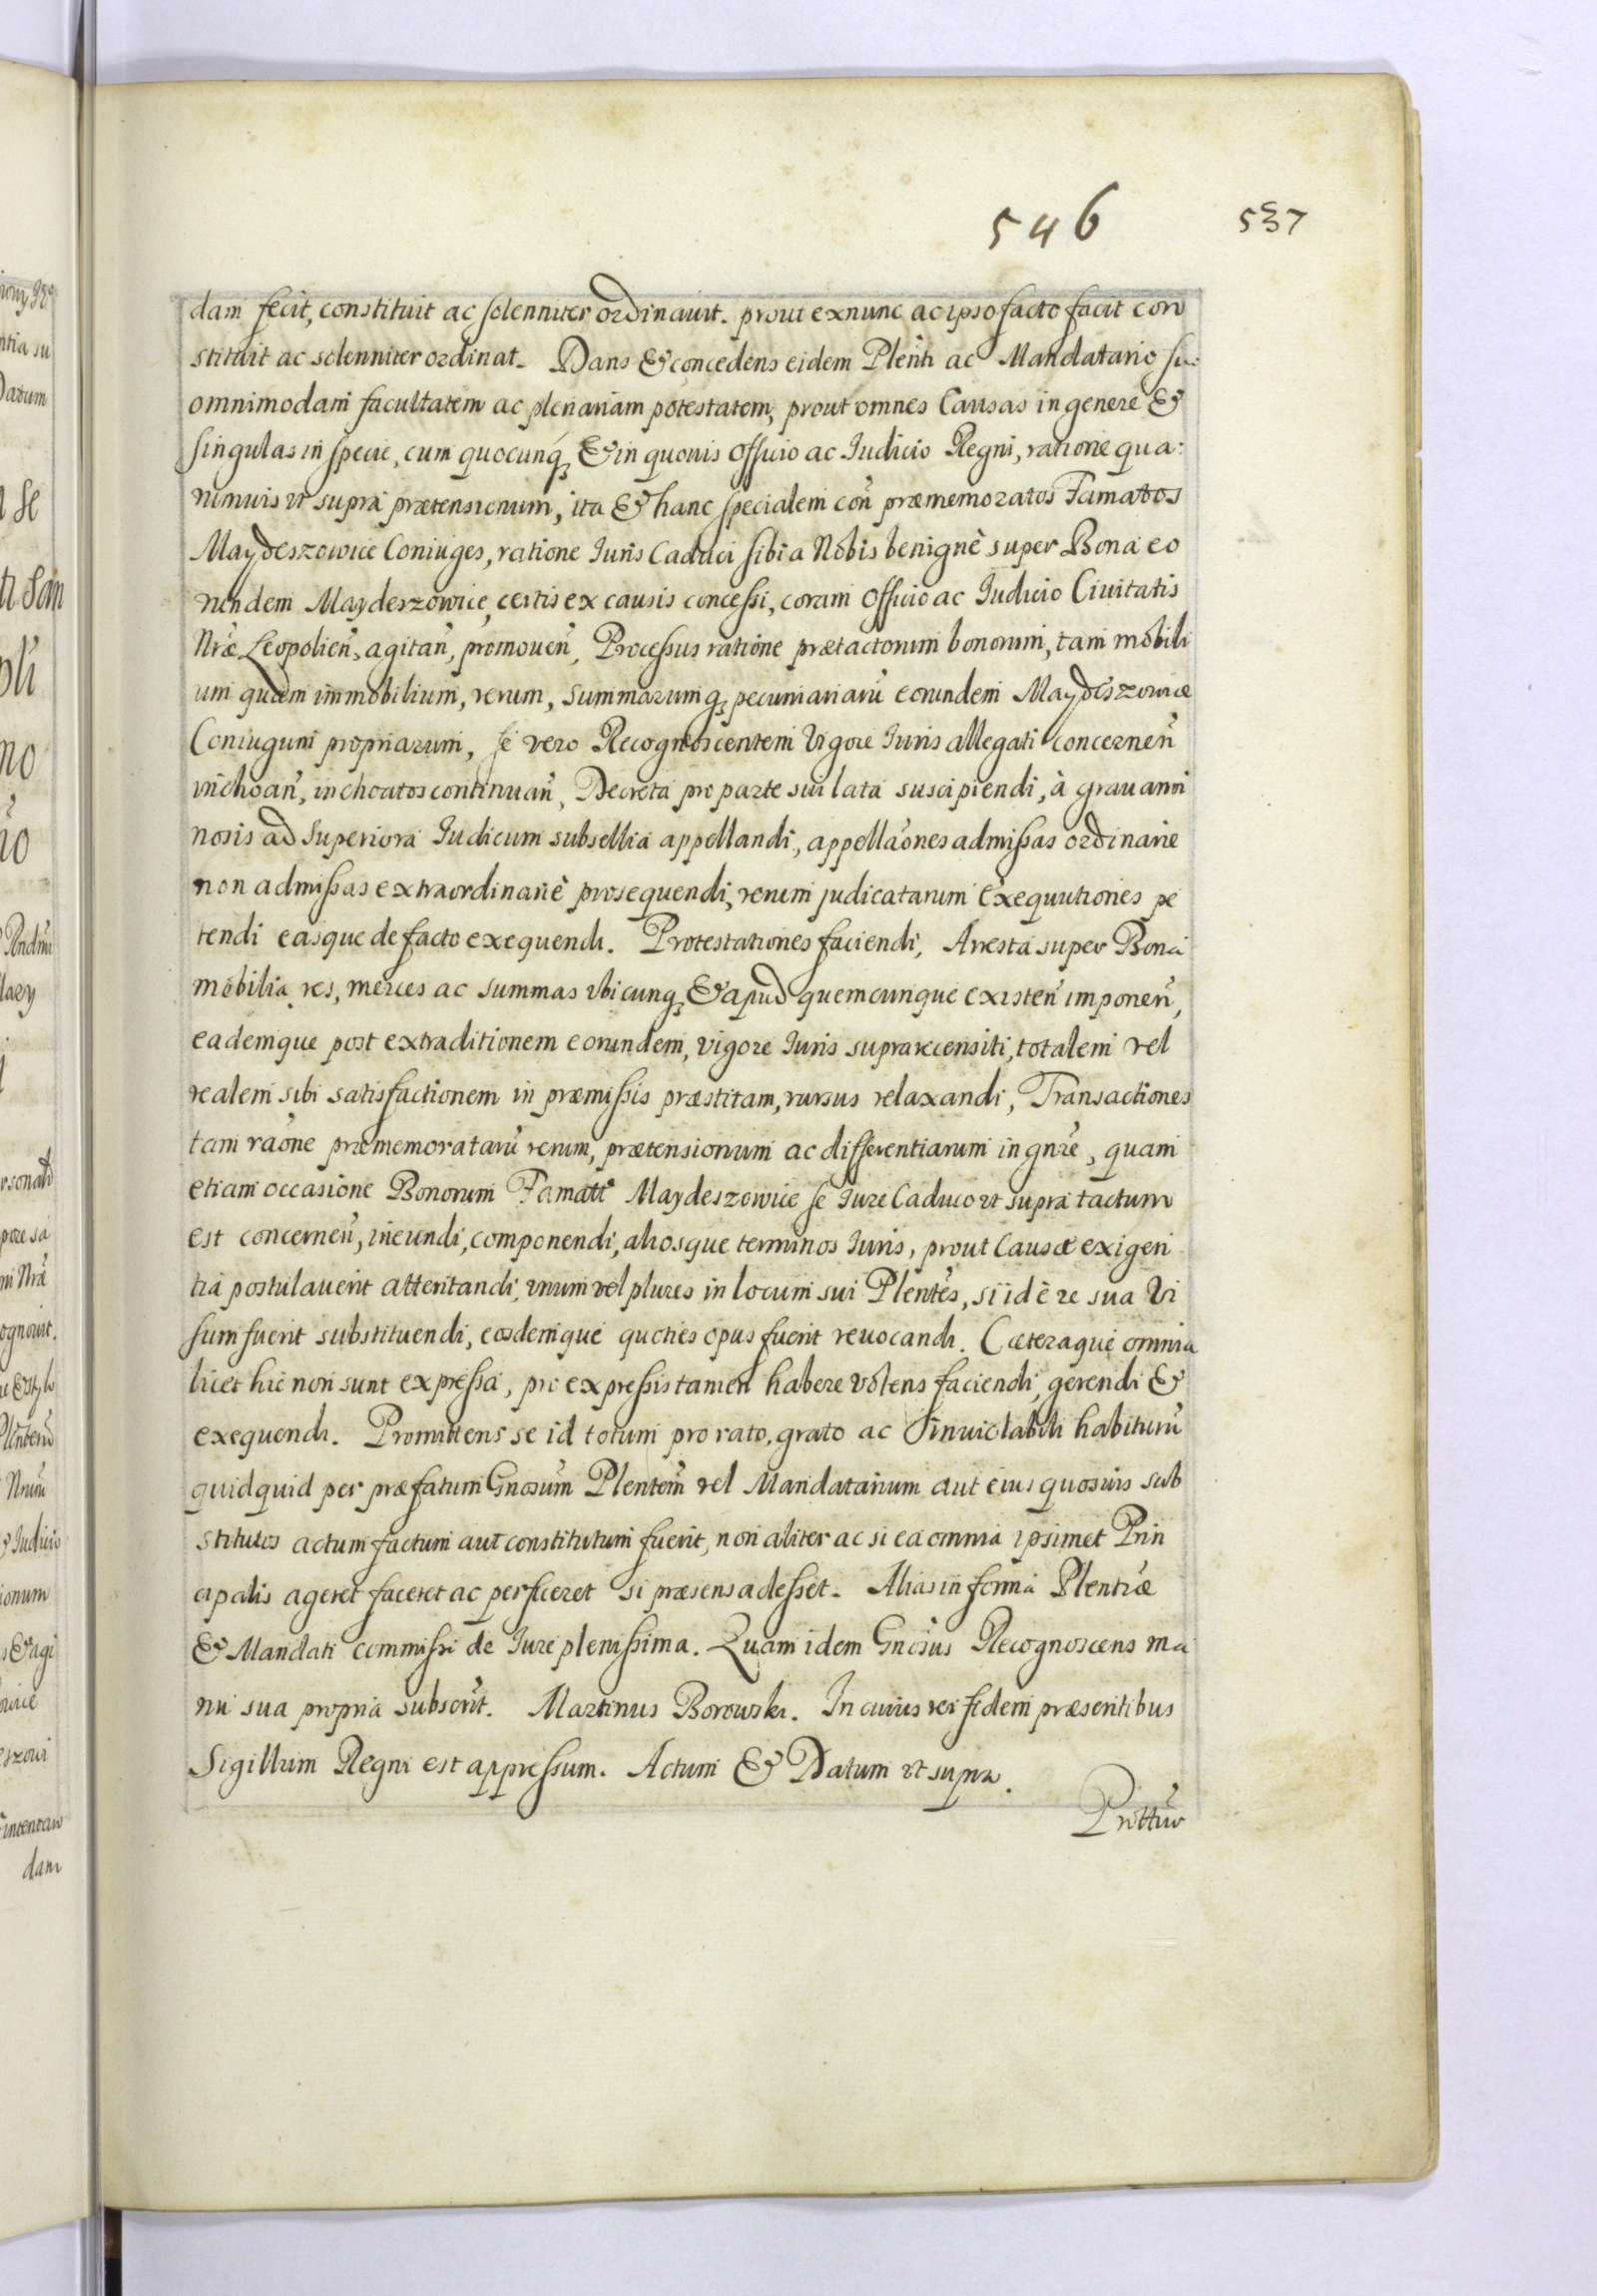 546
537
dam fecit, constituit ac solenniter ordinauit. prout exnunc ac ipso facto facit con
stituit ac solenniter ordinat. Dans & concedens eidem Plenti ac Mandatario su:
omnimodam facultatem ac plenariam potestatem, prout omnes Causas in genere &
singulas in specie, cum quocunq; & in quouis Officio ac Iudicio Regni, ratione qua:
rumuis vt supra prætensionum, ita & hanc specialem con̄ præmemoratos Famatos
Maydeszowice Coniuges, ratione Iuris Caduci sibi a Nobis benignè super Bona eo
rundem Maydeszowice, certis ex causis concessi, coram Officio ac Iudicio Ciuitatis
Nræ̃ Leopolien̄, agitan̄, promouen̄, Processus ratione prætactorum bonorum, tam mobili
um quam immobilium, rerum, summarumq; pecuniariarū eorundem Maydeszowice
Coniugum propriarum, se vero Recognoscentem Vigore Iuris allegati concernen̄
inchoan̄, inchoatos continuan̄, Decreta pro parte sui lata suscipiendi, à grauami
nosis ad Superiora Iudicum subsellia appellandi, appellãones admissas ordinarie
non admissas extraordinariè prosequendi, rerum judicatarum exequutiones pe
tendi easque de facto exequendi. Protestationes faciendi, Arresta super Bona
mobilia, res, merces ac summas vbicunq; & apud quemcunque existen̄ imponen̄,
eademque post extraditionem eorundem, vigore Iuris suprarecensiti, totalem vel
realem sibi satisfactionem in præmissis præstitam, rursus relaxandi, Transactiones
tam raõne præmemoratarū rerum, prætensionum ac differentiarum in gnr̃e, quam
etiam occasione Bonorum Famatt: Maydeszowice se Iure Caduco vt supra tactum
est concernen̄, ineundi, componendi, aliosque terminos Iuris, prout Causæ exigen
tia postulauerit attentandi, vnum vel plures in locum sui Plentẽs, si id è re sua Vi
sum fuerit substituendi, eosdemque quoties opus fuerit reuocandi. Cæteraque omnia
licet hic non sunt expressa, pro expressis tamen habere volens faciendi, gerendi &
exequendi. Promittens se id totum pro rato, grato ac inuiolabili habiturū
quidquid per præfatum Gnosum̃ Plentem̃ vel Mandatarium aut eius quosuis sub
stitutos actum factum aut constitutum fuerit, non aliter ac si ea omnia ipsimet Prin
cipalis ageret faceret ac perficeret si præsens adesset. Alias in forma Plentiæ̃
& Mandati commissi de Iure plenissima. Quam idem Gnosus Recognoscens ma
nu sua propria subscrīt. Martinus Borowski. In cuius rei fidem præsentibus
Sigillum Regni est appressum. Actum & Datum vt supra.